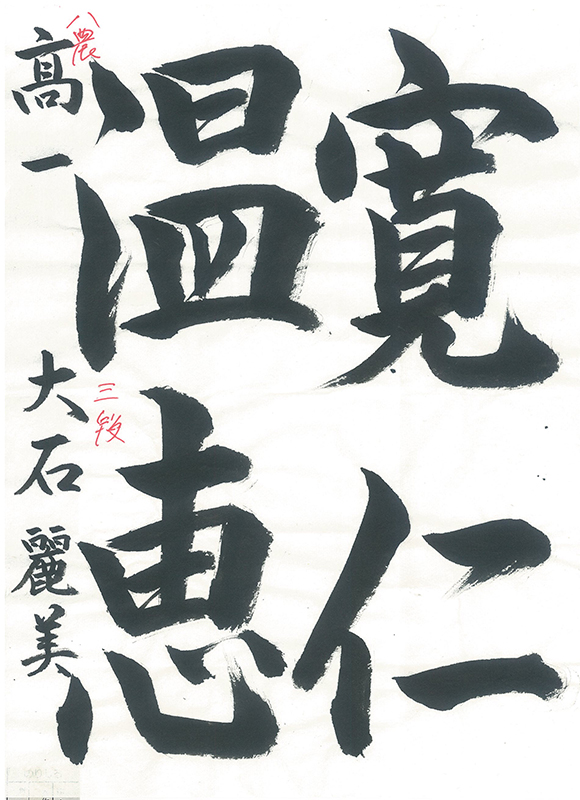 寛仁
温恵
八農
高一 大石麗美
三段